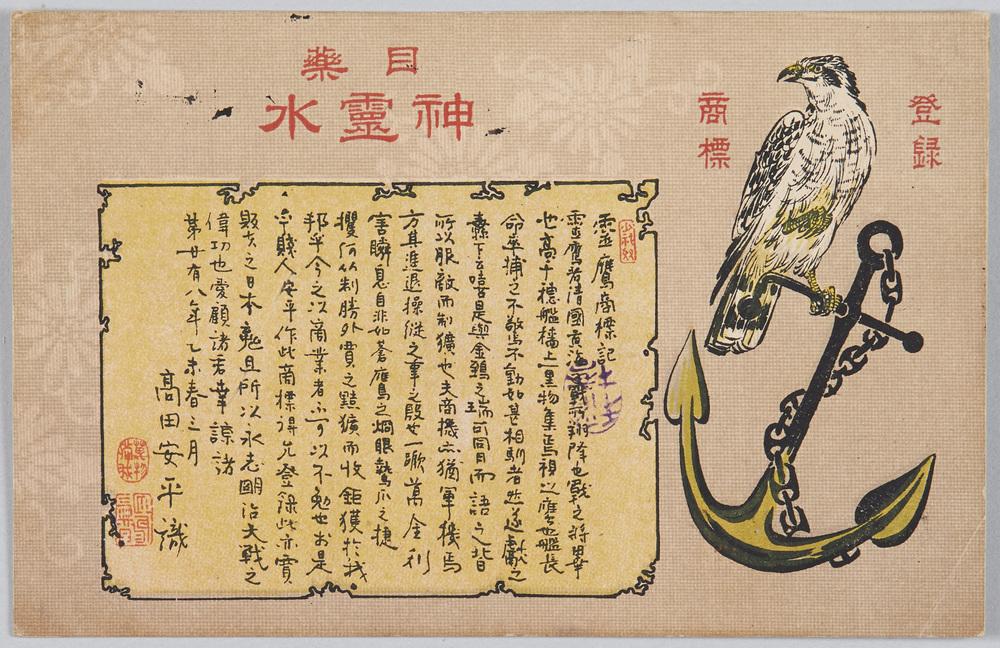 目藥
神靈水
登録
商標
霊鷹商標記
霊鷹者清國黄海之戰所翔降也戰之將畢
也高千穂艦檣上黒物集焉視之鷹也艦長
命卒捕之不驚不動如甚相馴者然遂獻之
下云嘻是與金鵄之瑞可同日而語之皆
所以服敵而制獷也夫商機亦猶軍機焉
方其進退操縱之事之殷也一蹶萬金利
害瞬息自非如蒼鷹之烱眼鷙爪之捷
攫何以制勝外賈之黠獷而收鉅獲於我
邦乎今之以商業者不可以不勉也於是
乎賤人安平作此商標得允登録此亦賣
之日本魂且所以永志明治大戰之
偉功也愛顧諸君幸諒諸
第廿有八年乙未春三月
高田安平識